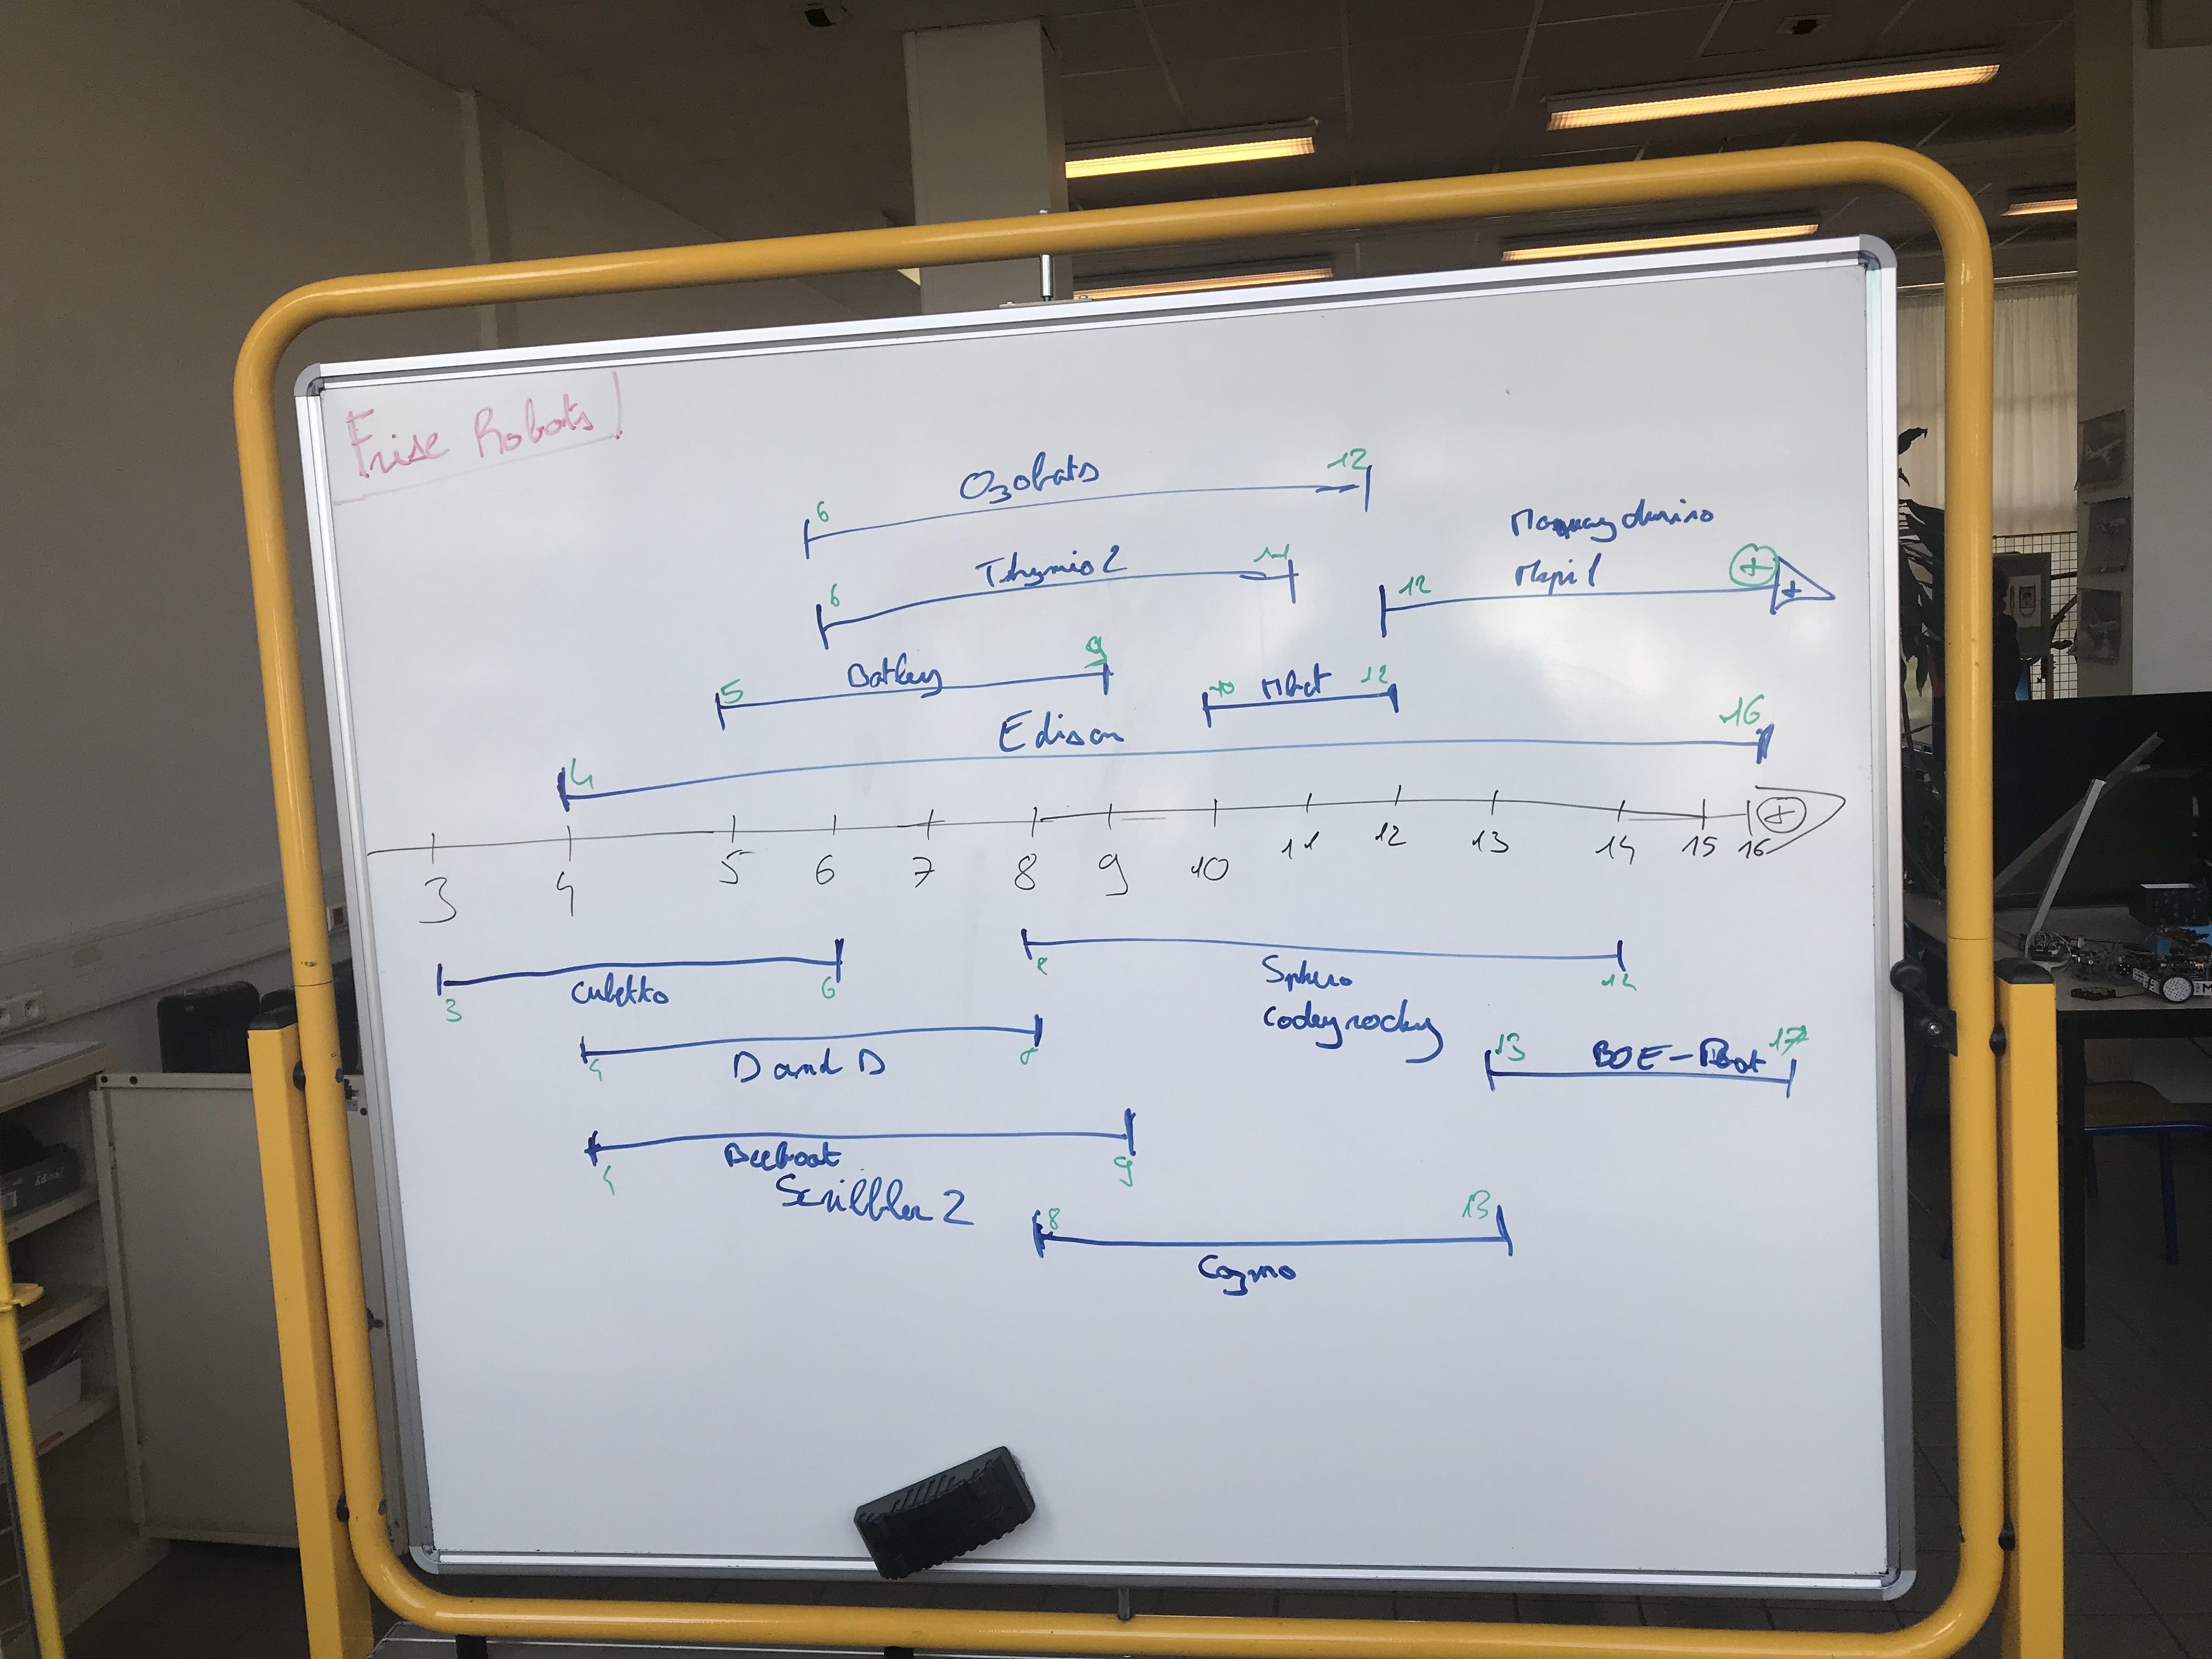 Frise Robots
Ozobots
6 12
Thymio 2
6 11
12 +
+
Botley
5 9
10 Mbot 12
Edison
4 16
3 4 5 6 7 8 9 10 11 12 13 14 15 16 +
3 Cubetto 6
8 14
Sphero
Codeyrocky
4 D and D 8
13 BOE-Bot 17
4 Beeboat 9
Scribbler 2
8 13
Cozmo